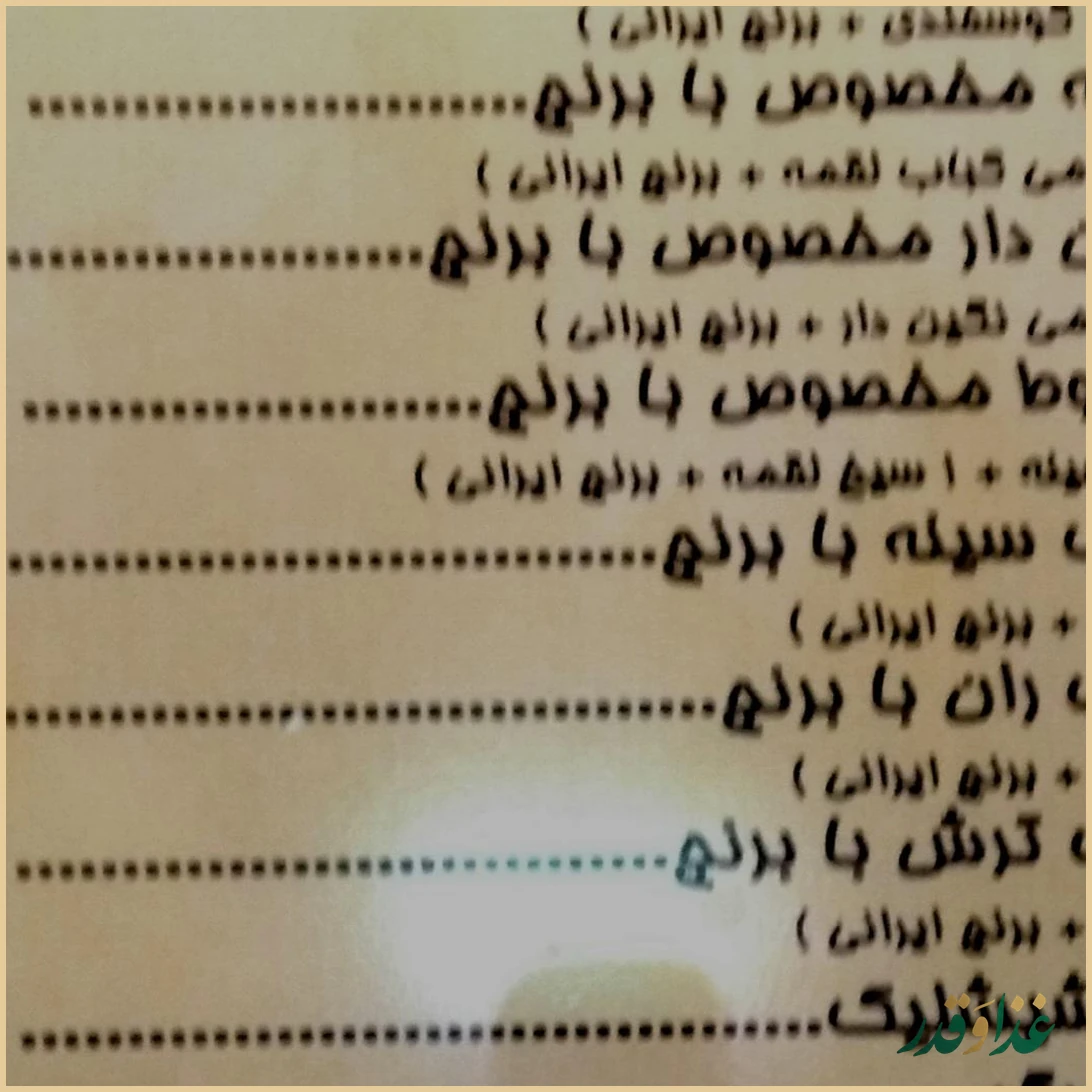 گوسفندی + برنج ایرانی )
مخصوص با برنج
کباب لقمه + برنج ایرانی )
دار مخصوص با برنج
نگین دار + برنج ایرانی )
مخصوص با برنج
+ ۱ سیخ لقمه + برنج ایرانی )
سینه با برنج
+ برنج ایرانی )
ران با برنج
+ برنج ایرانی )
ترش با برنج
+ برنج ایرانی )
شیشلیک
غذا و قدر